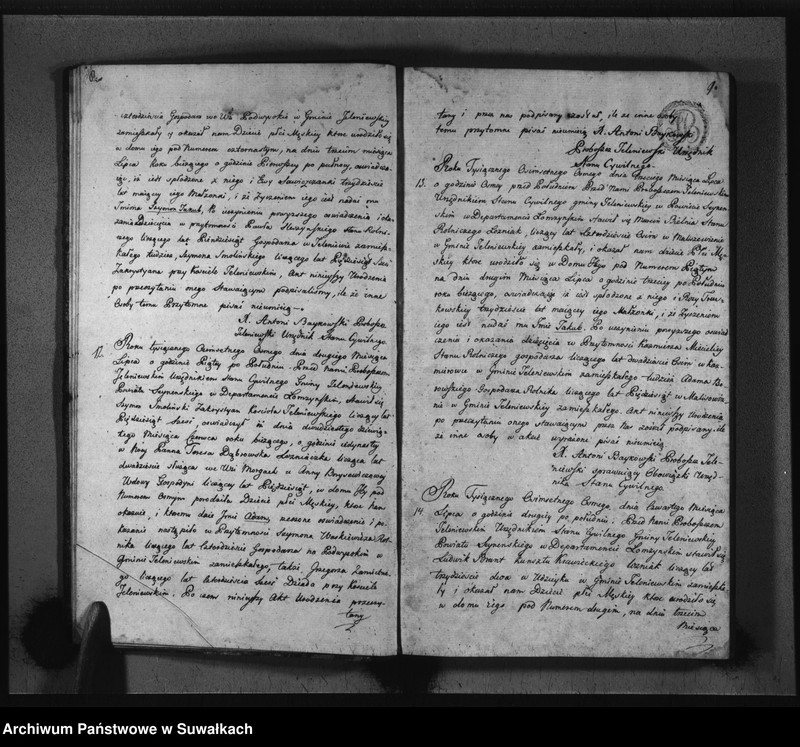 8.
czterdzieści Gospodarz we Wsi Podwysokie w Gminie Jeleniewskiey
zamieszkały y okazał nam Dziecie płci Męskiey ktore urodziło się
w domu iego pod Numerem czternastym, na dniu trzecim miesiąca
Lipca Roku bieżącego o godzinie Pierwszey po pułnocy, oświadcza-
iąc, iż iest spłodzone z niego i Ewy
lat maiącey iego Małżonki, i że życzeniem iego iest nadać mu
Imina Szymon Jakub, Po uczynieniu powyższego oświadczenia i oka-
zania Dziecięcia w przytomności Pawła Stanu Rolni-
czego liczącego lat Pięćdziesiąt Gospodarza w Jeleniewie zamiesz-
kałego tudzież, Szymona Smolińskiego liczącego lat Pięćdziesiąt Sześć
Zakrystyana przy Kościele Jeleniewskim, Akt ninieyszy Urodzenia
po przeczytaniu onego Stawaiącym podpisaliśmy, ile że inne
Osoby temu Przytomne pisać nieumieią
X. Antoni Baykowski Proboszcz
Jeleniewski Urzędnik Stanu Cywilnego
12. Roku tysiącznego Osimsetnego Osmego dnia drugiego Miesiąca
Lipca o godzinie Piątey po Południu. Przed Nami Proboszczem
Jeleniewskim Urzędnikiem Stanu Cywilnego Gminy Jeleniewskiey
Powiatu Seynenskiego w Departamencie Łomżynskim, Stawił się
Szymon Smolinski Zakrystyan Kościoła Jeleniewskiego liczący lat
Pięćdziesiąt Sześć, oświadczył iż dnia dwudziestego dziewią-
tego Miesiąca Czerwca roku bieżącego, o godzinie iedynastey
w Nocy Panna Teresa Dąbrowska licząca lat
dwadzieścia Służąca we Wsi Morgach u Anny Borysewiczowey
Wdowy Gospodyni liczącey lat Pięćdziesiąt, w domu Jey pod
Numerem Osmym porodziła Dziecie płci Męskiey, ktore nam
okazuie, i ktoremu daie Jmie Adam, uczone oświadczenie i po-
kazanie nastąpiło w Przytomności Szymona Waskiewicza Rol-
nika liczącego lat Gospodarza na Podwysokim w
Gminie Jeleniewskim zamieszkałego, także Grzegorza
go liczącego lat Sześć Dziada przy Kościele
Jeleniewskim. Po czem ninieyszy Akt Urodzenia przeczy-
tany
9.
tany i przez nas podpisany został, ile że inne osoby
temu przytomne pisać nieumieią X. Antoni Baykowski
Proboszcz Jeleniewski Urzędnik
Stanu Cywilnego
13. Roku Tysiącznego Osimsetnego Osmego dnia trzeciego Miesiąca Lipca
o godzinie Osmey przed Południem Przed Nami Proboszczem Jeleniewskim
Urzędnikiem Stanu Cywilnego gminy Jeleniewskiey w Powiecie Seynen-
skim w Departamencie Łomzynskim Stawił się Marcin Stanu
Rolniczego liczący lat Czterdzieście Osim w Malesowiźnie
w Gminie Jeleniewskiey zamieszkały, i okazał nam dziecie Płci Mę-
skiey ktore urodziło się w Domu Jego pod Numerem Piątym
na dniu drugim Miesiąca Lipca o godzinie trzeciey po Południu
roku bieżącego, oświadczaiąc iż iest spłodzone z niego i
trzydzieście lat maiącey iego Małżonki, i że Życzeniem
iego iest nadać mu Jmie Jakub. Po uczynieniu powyższego oświad-
czenia i okazania dziecięcia w Przytomności Kazimierza
Stanu Rolniczego gospodarza liczącego lat dwadzieścia Osim w Kaz-
mirowce w Gminie Jeleniewskim zamieszkałego tudzież Adama
Gospodarza Rolnika liczącego lat Pięćdziesiąt w Malesowiź-
nie w Gminie Jeleniewskiey zamieszkałego. Akt ninieyszy Urodzenia
po przeczytaniu onego Stawaiącym przez Nas został podpisany, ile
że inne osoby w akcie wyrażone pisać nieumieią
X. Antoni Baykowski Proboszcz Jele-
niewski sprawuiący Obowiązki Urzęd-
nika Stanu Cywilnego
14. Roku Tysiącznego Osimsetnego Osmego, dnia Czwartego Miesiąca
Lipca o godzinie drugiey po południu. Przed Nami Proboszczem
Jeleniewskim Urzędnikiem Stanu Cywilnego Gminy Jeleniewskiey
Powiatu Seynenskiego w Departamencie Łomzynskim Stawił się
Ludwik Brant kunsztu Krawieckiego liczący lat
trzydzieście dwa w w Gminie Jeleniewskim zamieszka-
ły i okazał nam Dziecie płci Męskiey ktore urodziło się
w domu iego pod Numerem drugim, na dniu trzecim
Miesiąca
Archiwum Państwowe w Suwałkach